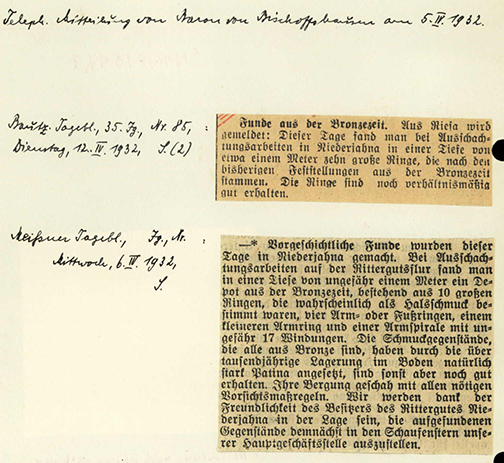 Teleph. Mitteilung von Baron von Bischoffshausen am 5. IV. 1932.
Bautz. Tagebl., 35. Jg., Nr. 85, :
Dienstag, 12. IV. 1932, S. (2)
Funde aus der Bronzezeit. Aus Riesa wird
gemeldet: Dieser Tage fand man bei Ausschach-
tungsarbeiten in Niederjahna in einer Tiefe von
etwa einem Meter zehn große Ringe, die nach den
bisherigen Feststellungen aus der Bronzezeit
stammen. Die Ringe sind noch verhältnismäßig
gut erhalten.
Meißner Tagebl., Jg., Nr. :
Mittwoch, 6. IV. 1932,
S.
—* Vorgeschichtliche Funde wurden dieser
Tage in Niederjahna gemacht. Bei Ausschach-
tungsarbeiten auf der Rittergutsflur fand man
in einer Tiefe von ungefähr einem Meter ein De-
pot aus der Bronzezeit, bestehend aus 10 großen
Ringen, die wahrscheinlich als Halsschmuck be-
stimmt waren, vier Arm- oder Fußringen, einem
kleineren Armring und einer Armspirale mit un-
gefähr 17 Windungen. Die Schmuckgegenstände,
die alle aus Bronze sind, haben durch die über
tausendjährige Lagerung im Boden natürlich
stark Patina angesetzt, sind sonst aber noch gut
erhalten. Ihre Bergung geschah mit allen nötigen
Vorsichtsmaßregeln. Wir werden dank der
Freundlichkeit des Besitzers des Rittergutes Nie-
derjahna in der Lage sein, die aufgefundenen
Gegenstände demnächst in den Schaufenstern unse-
rer Hauptgeschäftsstelle auszustellen.